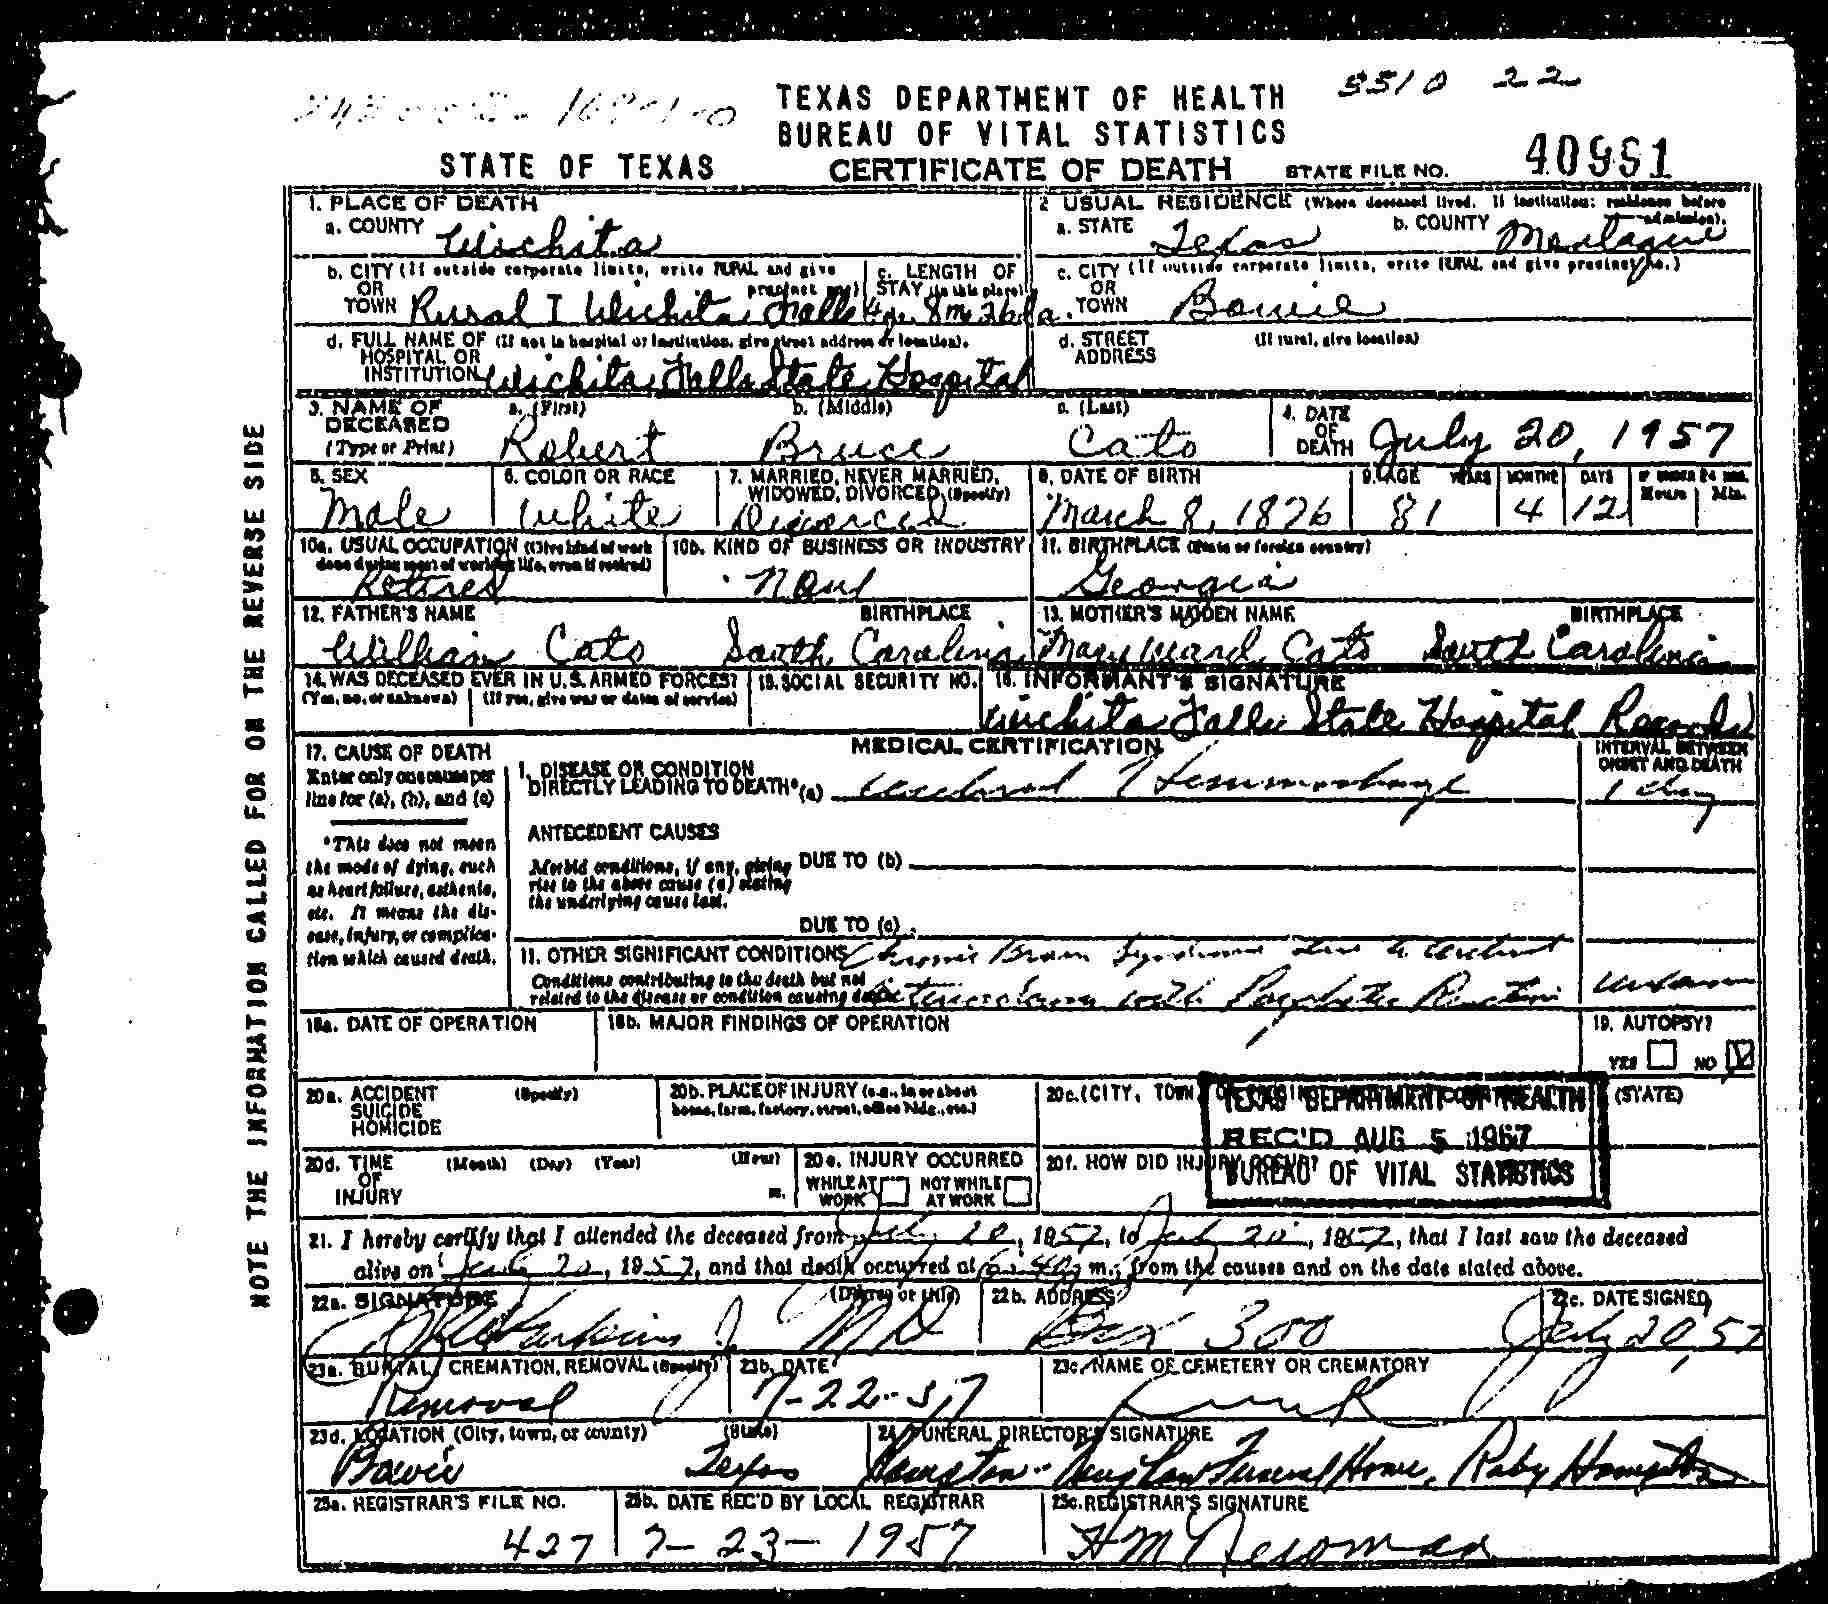 5510 22
TEXAS DEPARTMENT OF HEALTH
BUREAU OF VITAL STATISTICS
STATE OF TEXAS CERTIFICATE OF DEATH STATE FILE NO. 40991
NOTE THE INFORMATION CALLED FOR ON THE REVERSE SIDE
1. PLACE OF DEATH
a. COUNTY Wichita
2 USUAL RESIDENCE (Where deceased lived. If institution: residence before admission).
a. STATE Texas b. COUNTY Montague
b. CITY (If outside corporate limits, write RURAL and give precinct no.)
OR
TOWN Rural I Wichita Falls
c. LENGTH OF
STAY (in this place)
4y. 8m 26da.
c. CITY (If outside corporate limits, write RURAL and give precinct no.)
OR
TOWN Bowie
d. FULL NAME OF (If not in hospital or institution, give street address or location).
HOSPITAL OR
INSTITUTION Wichita Falls State Hospital
d. STREET (If rural, give location)
ADDRESS
3. NAME OF a. (First) b. (Middle) c. (Last)
DECEASED
(Type or Print) Robert Bruce Cato
4. DATE
OF
DEATH July 20, 1957
5. SEX
Male
6. COLOR OR RACE
White
7. MARRIED, NEVER MARRIED,
WIDOWED, DIVORCED (Specify)
Divorced
8. DATE OF BIRTH
March 8, 1876
9. AGE YEARS MONTHS DAYS IF UNDER 24 HRS.
Hours Min.
81 4 12
10a. USUAL OCCUPATION (Give kind of work
done during most of working life, even if retired)
Retired
10b. KIND OF BUSINESS OR INDUSTRY
11. BIRTHPLACE (State or foreign country)
Georgia
12. FATHER'S NAME BIRTHPLACE
William Cato South Carolina
13. MOTHER'S MAIDEN NAME BIRTHPLACE
Mary Ward Cato South Carolina
14. WAS DECEASED EVER IN U.S. ARMED FORCES?
(Yes, no, or unknown) (If yes, give war or dates of service)
15. SOCIAL SECURITY NO.
16. INFORMANT'S SIGNATURE
Wichita Falls State Hospital Records
17. CAUSE OF DEATH
Enter only one cause per
line for (a), (b), and (c)
*This does not mean
the mode of dying, such
as heart failure, asthenia,
etc. It means the dis-
ease, injury, or complica-
tion which caused death.
MEDICAL CERTIFICATION
INTERVAL BETWEEN
ONSET AND DEATH
I. DISEASE OR CONDITION
DIRECTLY LEADING TO DEATH* (a) Cerebral Hemmorhage 1 day
ANTECEDENT CAUSES
Morbid conditions, if any, giving
rise to the above cause (a) stating
the underlying cause last.
DUE TO (b)
DUE TO (c)
11. OTHER SIGNIFICANT CONDITIONS
Conditions contributing to the death but not
related to the disease or condition causing death.
Chronic Brain Syndrome due to Cerebral
with Psychotic Reaction unknown
18a. DATE OF OPERATION
18b. MAJOR FINDINGS OF OPERATION
19. AUTOPSY?
YES NO
20a. ACCIDENT (Specify)
SUICIDE
HOMICIDE
20b. PLACE OF INJURY (e.g., in or about
home, farm, factory, street, office bldg., etc.)
20c. (CITY, TOWN, (STATE)
TEXAS DEPARTMENT OF HEALTH
REC'D AUG 5 1957
BUREAU OF VITAL STATISTICS
20d. TIME (Month) (Day) (Year) (Hour)
OF
INJURY m.
20e. INJURY OCCURRED
WHILE AT WORK NOT WHILE AT WORK
20f. HOW DID INJURY OCCUR?
21. I hereby certify that I attended the deceased from July 20, 1957, to July 20, 1957, that I last saw the deceased
alive on July 20, 1957, and that death occurred at 6:40 m., from the causes and on the date stated above.
22a. SIGNATURE (Degree or title)
MD
22b. ADDRESS
Box 300
22c. DATE SIGNED
July 20, 57
23a. BURIAL, CREMATION, REMOVAL (Specify)
Removal
23b. DATE
7-22-57
23c. NAME OF CEMETERY OR CREMATORY
23d. LOCATION (City, town, or county) (State)
Bowie Texas
24. FUNERAL DIRECTOR'S SIGNATURE
Funeral Home,
25a. REGISTRAR'S FILE NO.
427
25b. DATE REC'D BY LOCAL REGISTRAR
7-23-1957
25c. REGISTRAR'S SIGNATURE
HM Newman